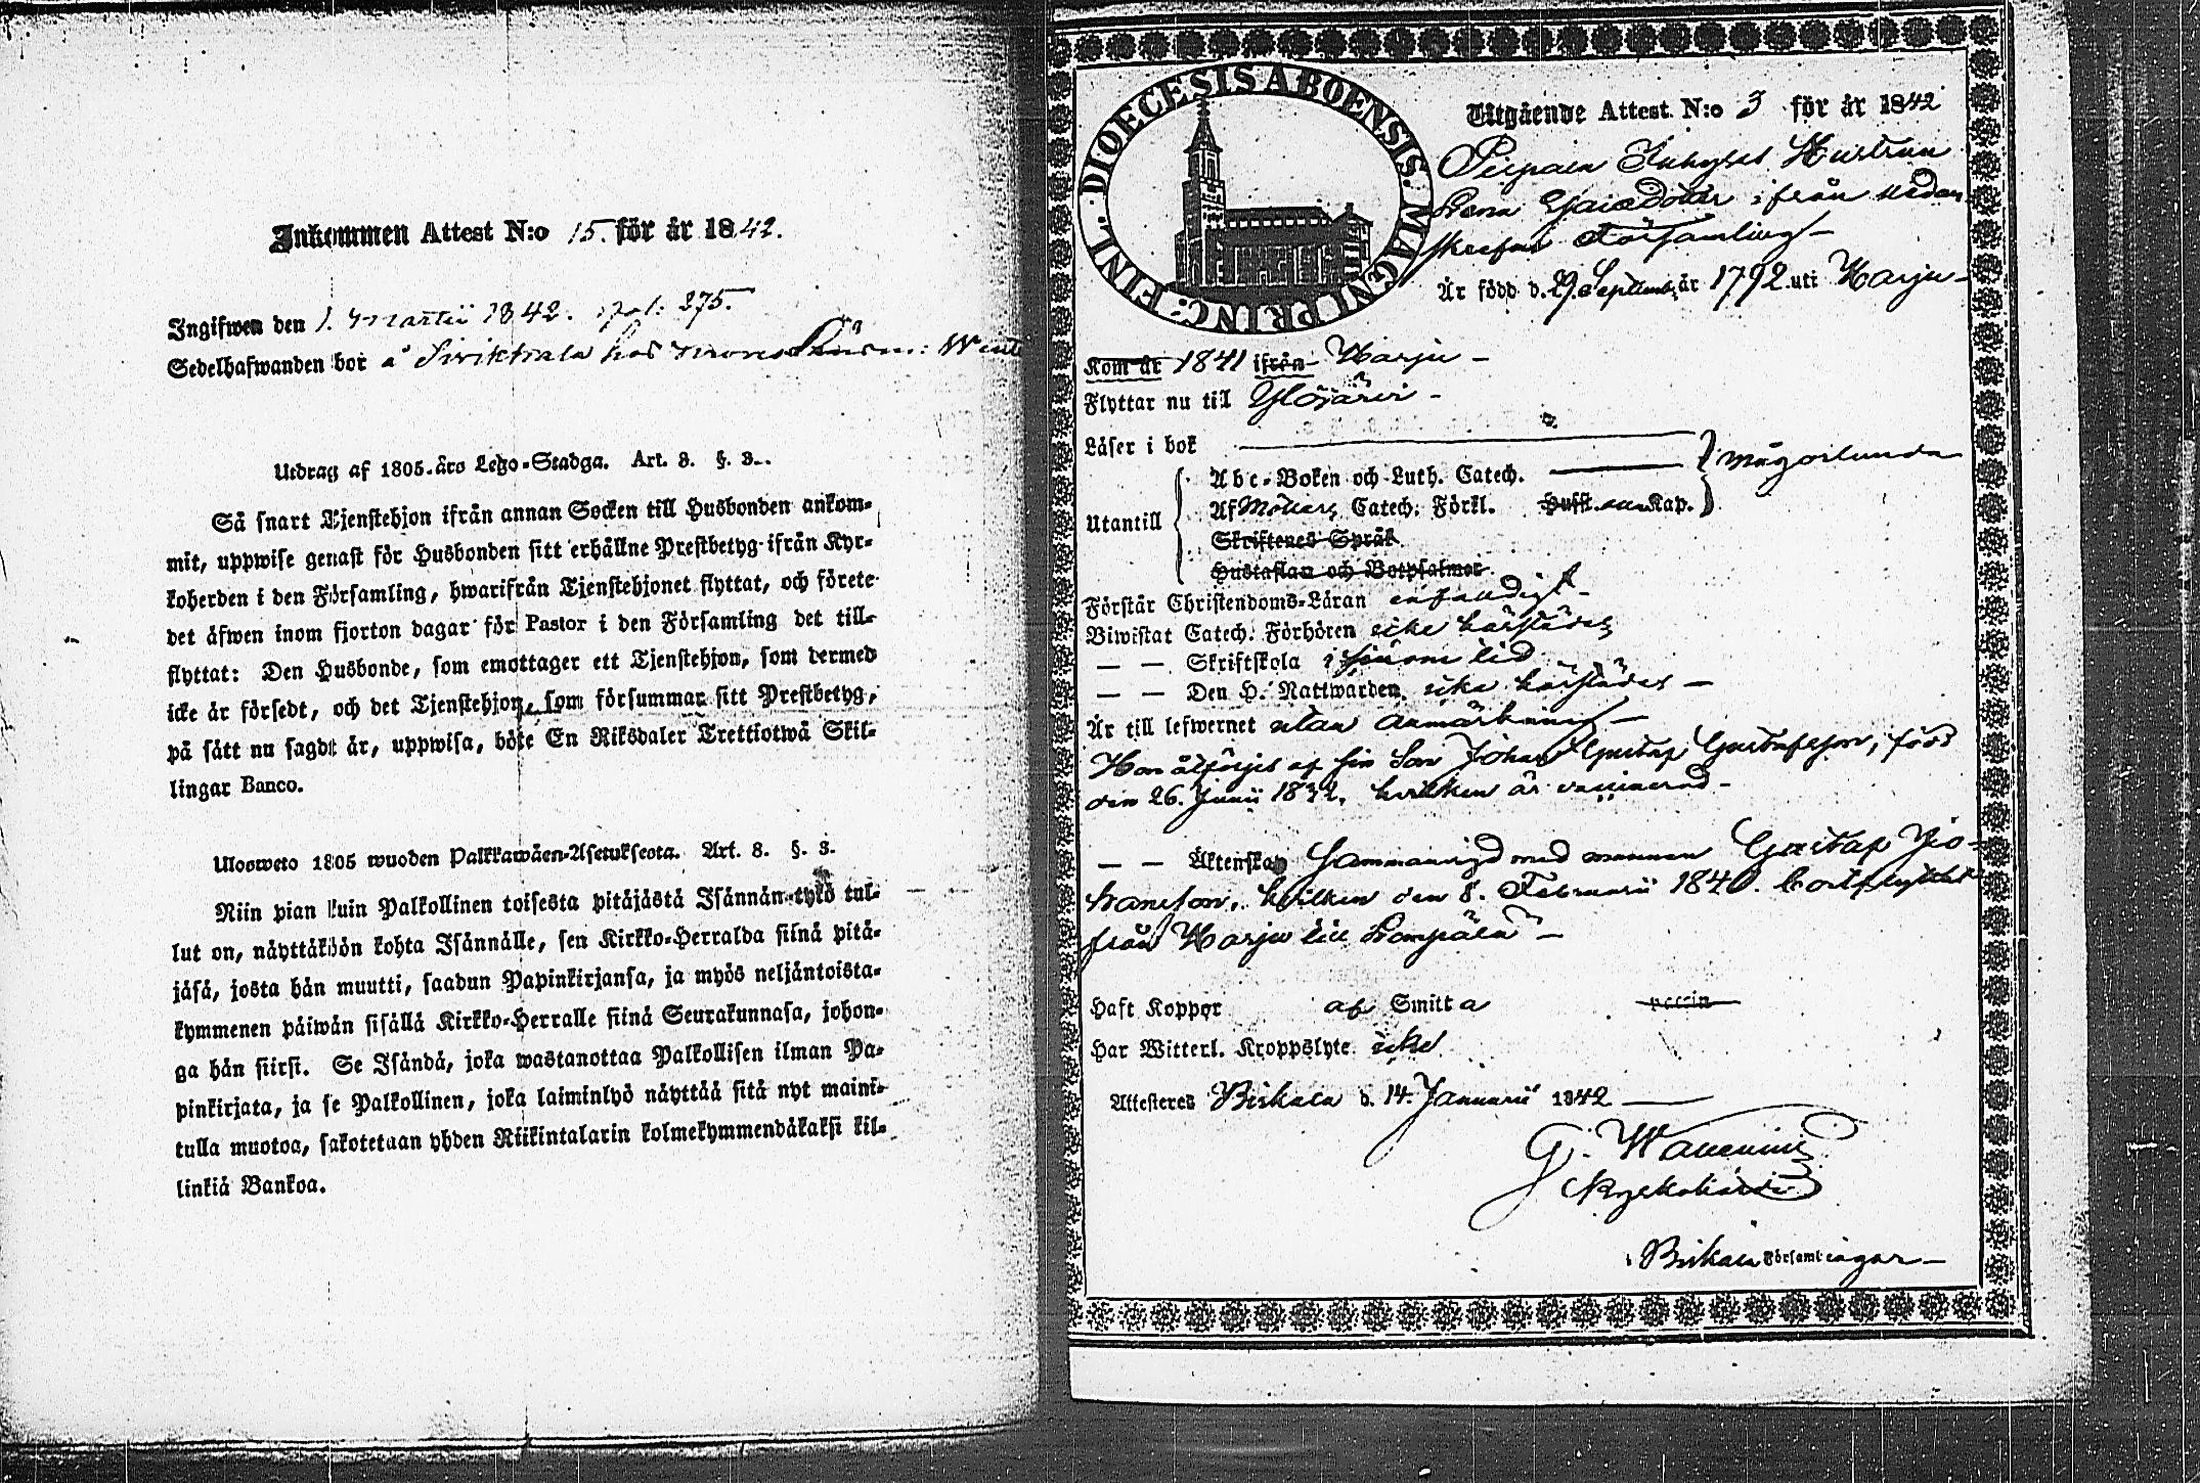 Inkommen Attest N:o 15. för år 1842.
Ingifwen den 1. Martii 1842. pol: 275.
Sedelhafwanden bor å Siviktrala hos
Utdrag af 1805 års Lego-Stadga. Art. 8. §. 3.
Så snart Tjenstehjon ifrån annan Socken till Husbonden ankom-
mit, uppwise genast för Husbonden sitt erhållne Prestbetyg ifrån Kyr-
koherden i den Församling, hwarifrån Tjenstehjonet flyttat, och förete
det äfwen inom fjorton dagar för Pastor i den Församling det till-
flyttat: Den Husbonde, som emottager ett Tjenstehjon, som dermed
icke är försedt, och det Tjenstehjon, som försummar sitt Prestbetyg,
på sätt nu sagdt är, uppwisa, böte En Riksdaler Trettiotwå Skil-
lingar Banco.
Ulosweto 1805 wuoden Palkkawäen-Asetuksesta. Art. 8. §. 3.
Niin pian kuin Palkollinen toisesta pitäjästä Isännän tykö tul-
lut on, näyttäköön kohta Isännälle, sen Kirkko-Herralda siinä pitä-
jäsä, josta hän muutti, saadun Papinkirjansa, ja myös neljäntoista-
kymmenen päiwän sisällä Kirkko-Herralle siinä Seurakunnasa, johon-
ga hän siirsi. Se Isändä, joka wastanottaa Palkollisen ilman Pa-
pinkirjata, ja se Palkollinen, joka laiminlyö näyttää sitä nyt maini-
tulla muotoa, sakotetaan yhden Riikintalarin kolmekymmendäkaksi kil-
linkiä Bankoa.
DIOECESIS ABOENSIS. MAGNI PRINC: FINL.
Utgående Attest. N:o 3 för år 1842
Pispala Inhyses Hustrun
Lena Gaisdotter ifrån nedan
skrefne Församling
Är född d. 29. Septemb. år 1792 uti Harju
Kom år 1841 ifrån Harju
Flyttar nu till Ylöjärvi
Läser i bok
Abc-Boken och Luth. Catech.
Utantill
Af Möllers Catech. Förkl. Hufst. Kap.
Skriftenes Språk
Hustaflan och Botpsalmer
Förstår Christendoms-Läran enfaldigt
Biwistat Catech. Förhören icke härstädes
— — Skriftskola i sinom tid
— — Den H. Nattwarden icke härstädes
Är till lefwernet utan anmärkning
Hon åtföljes af sin Son Johan Gustaf Gustafsson, född
den 26. Junii 1832, hvilken är vaccinerad
— — Äktenskap Sammanvigd med mannen Gustaf Jo-
hansson, hvilken den 8. Februarii 1840. bortflyttat
från Harju till Lempäla
Haft Koppor af Smitta vaccin
Har Witterl. Kroppslyte icke
Attesteras Birkala d. 14. Januarii 1842
G. Wallenius
Kyrkoherde
i Birkala Församlingar